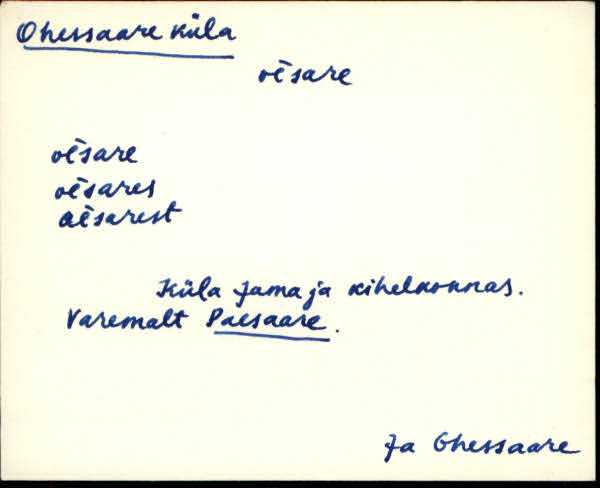 Ohessaare küla
oèsare
oèsare
oèsares
oèsarest
Küla Jamaja kihelkonnas.
Varemalt Paesaare.
Ja Ohessaare